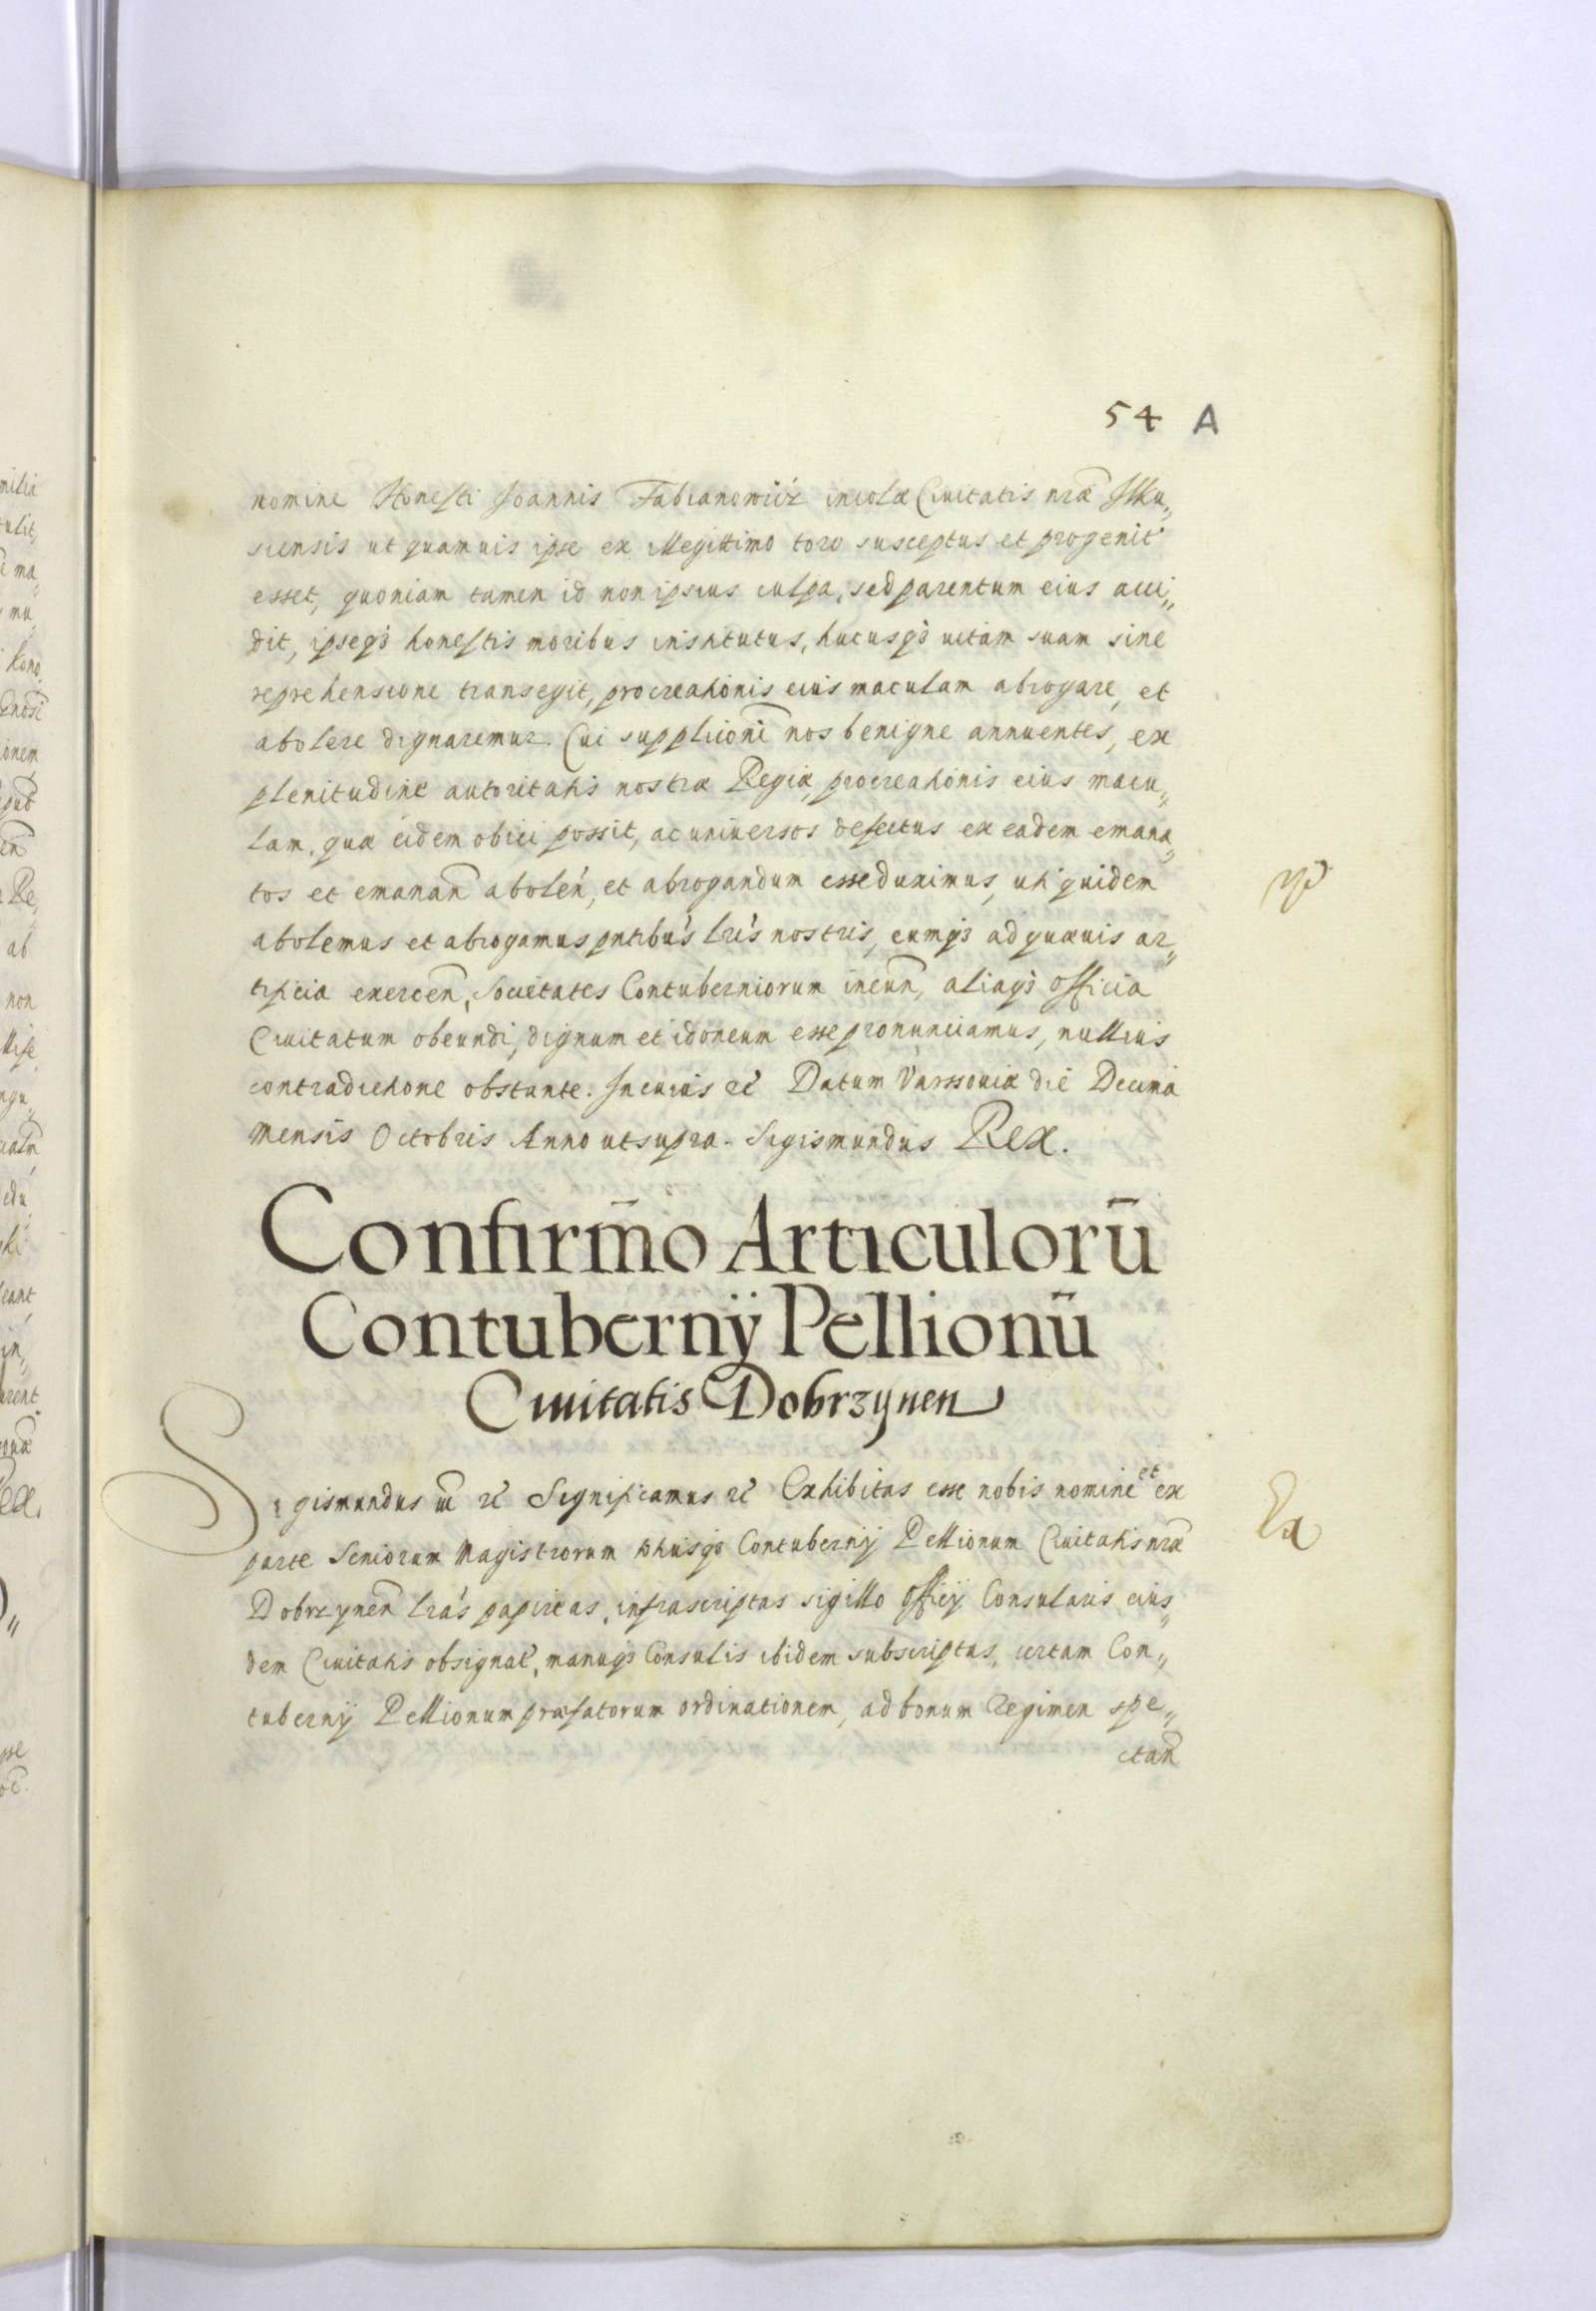 54 A
nomine Honesti Joannis Fabianowicz incolæ Ciuitatis nrã Ilku„
siensis ut quamuis ipse ex illegittimo toro susceptus et progenit
esset, quoniam tamen id non ipsius culpa, sed parentum eius acci„
dit, ipseq3 honestis moribus institutus, hucusq3 uitam suam sine
reprehensione transegit, procreationis eius maculam abrogare, et
abolere dignaremur. Cui supplicioni nos benigne annuentes, ex
plenitudine autoritatis nostræ Regiæ, procreationis eius macu„
lam, quæ eidem obici possit, ac uniuersos defectus ex eadem emana„
tos et emanañ aboleń, et abrogandum esse duximus, uti quidem
abolemus et abrogamus pntibus lris nostris, eumq3 ad quæuis ar„
tificia exerceñ, Societates Contuberniorum ineuñ, aliaq3 officia
Ciuitatum obeundi, dignum et idoneum esse pronunciamus, nullius
contradictione obstante. In cuius rė Datum Varssouiæ die Decima
mensis Octobris Anno ut supra. Sigismundus Rex.
Confirm̃o Articulorũ
Contubernÿ Pellionũ
Ciuitatis Dobrzynen
Sigismundus m̃ rė Significamus rė Exhibitas esse nobis nomine et ex
parte Seniorum Magistrorum totiusq3 Contubernij Pellionum Ciuitatis nrã
Dobrzyneñ lrás papireas, infrascriptas sigillo officij Consularis eius„
dem Ciuitatis obsignat, manuq3 Consulis ibidem subscriptas, certam Con„
tubernij Pellionum præfatorum ordinationem, ad bonum Regimen spe„
ctañ